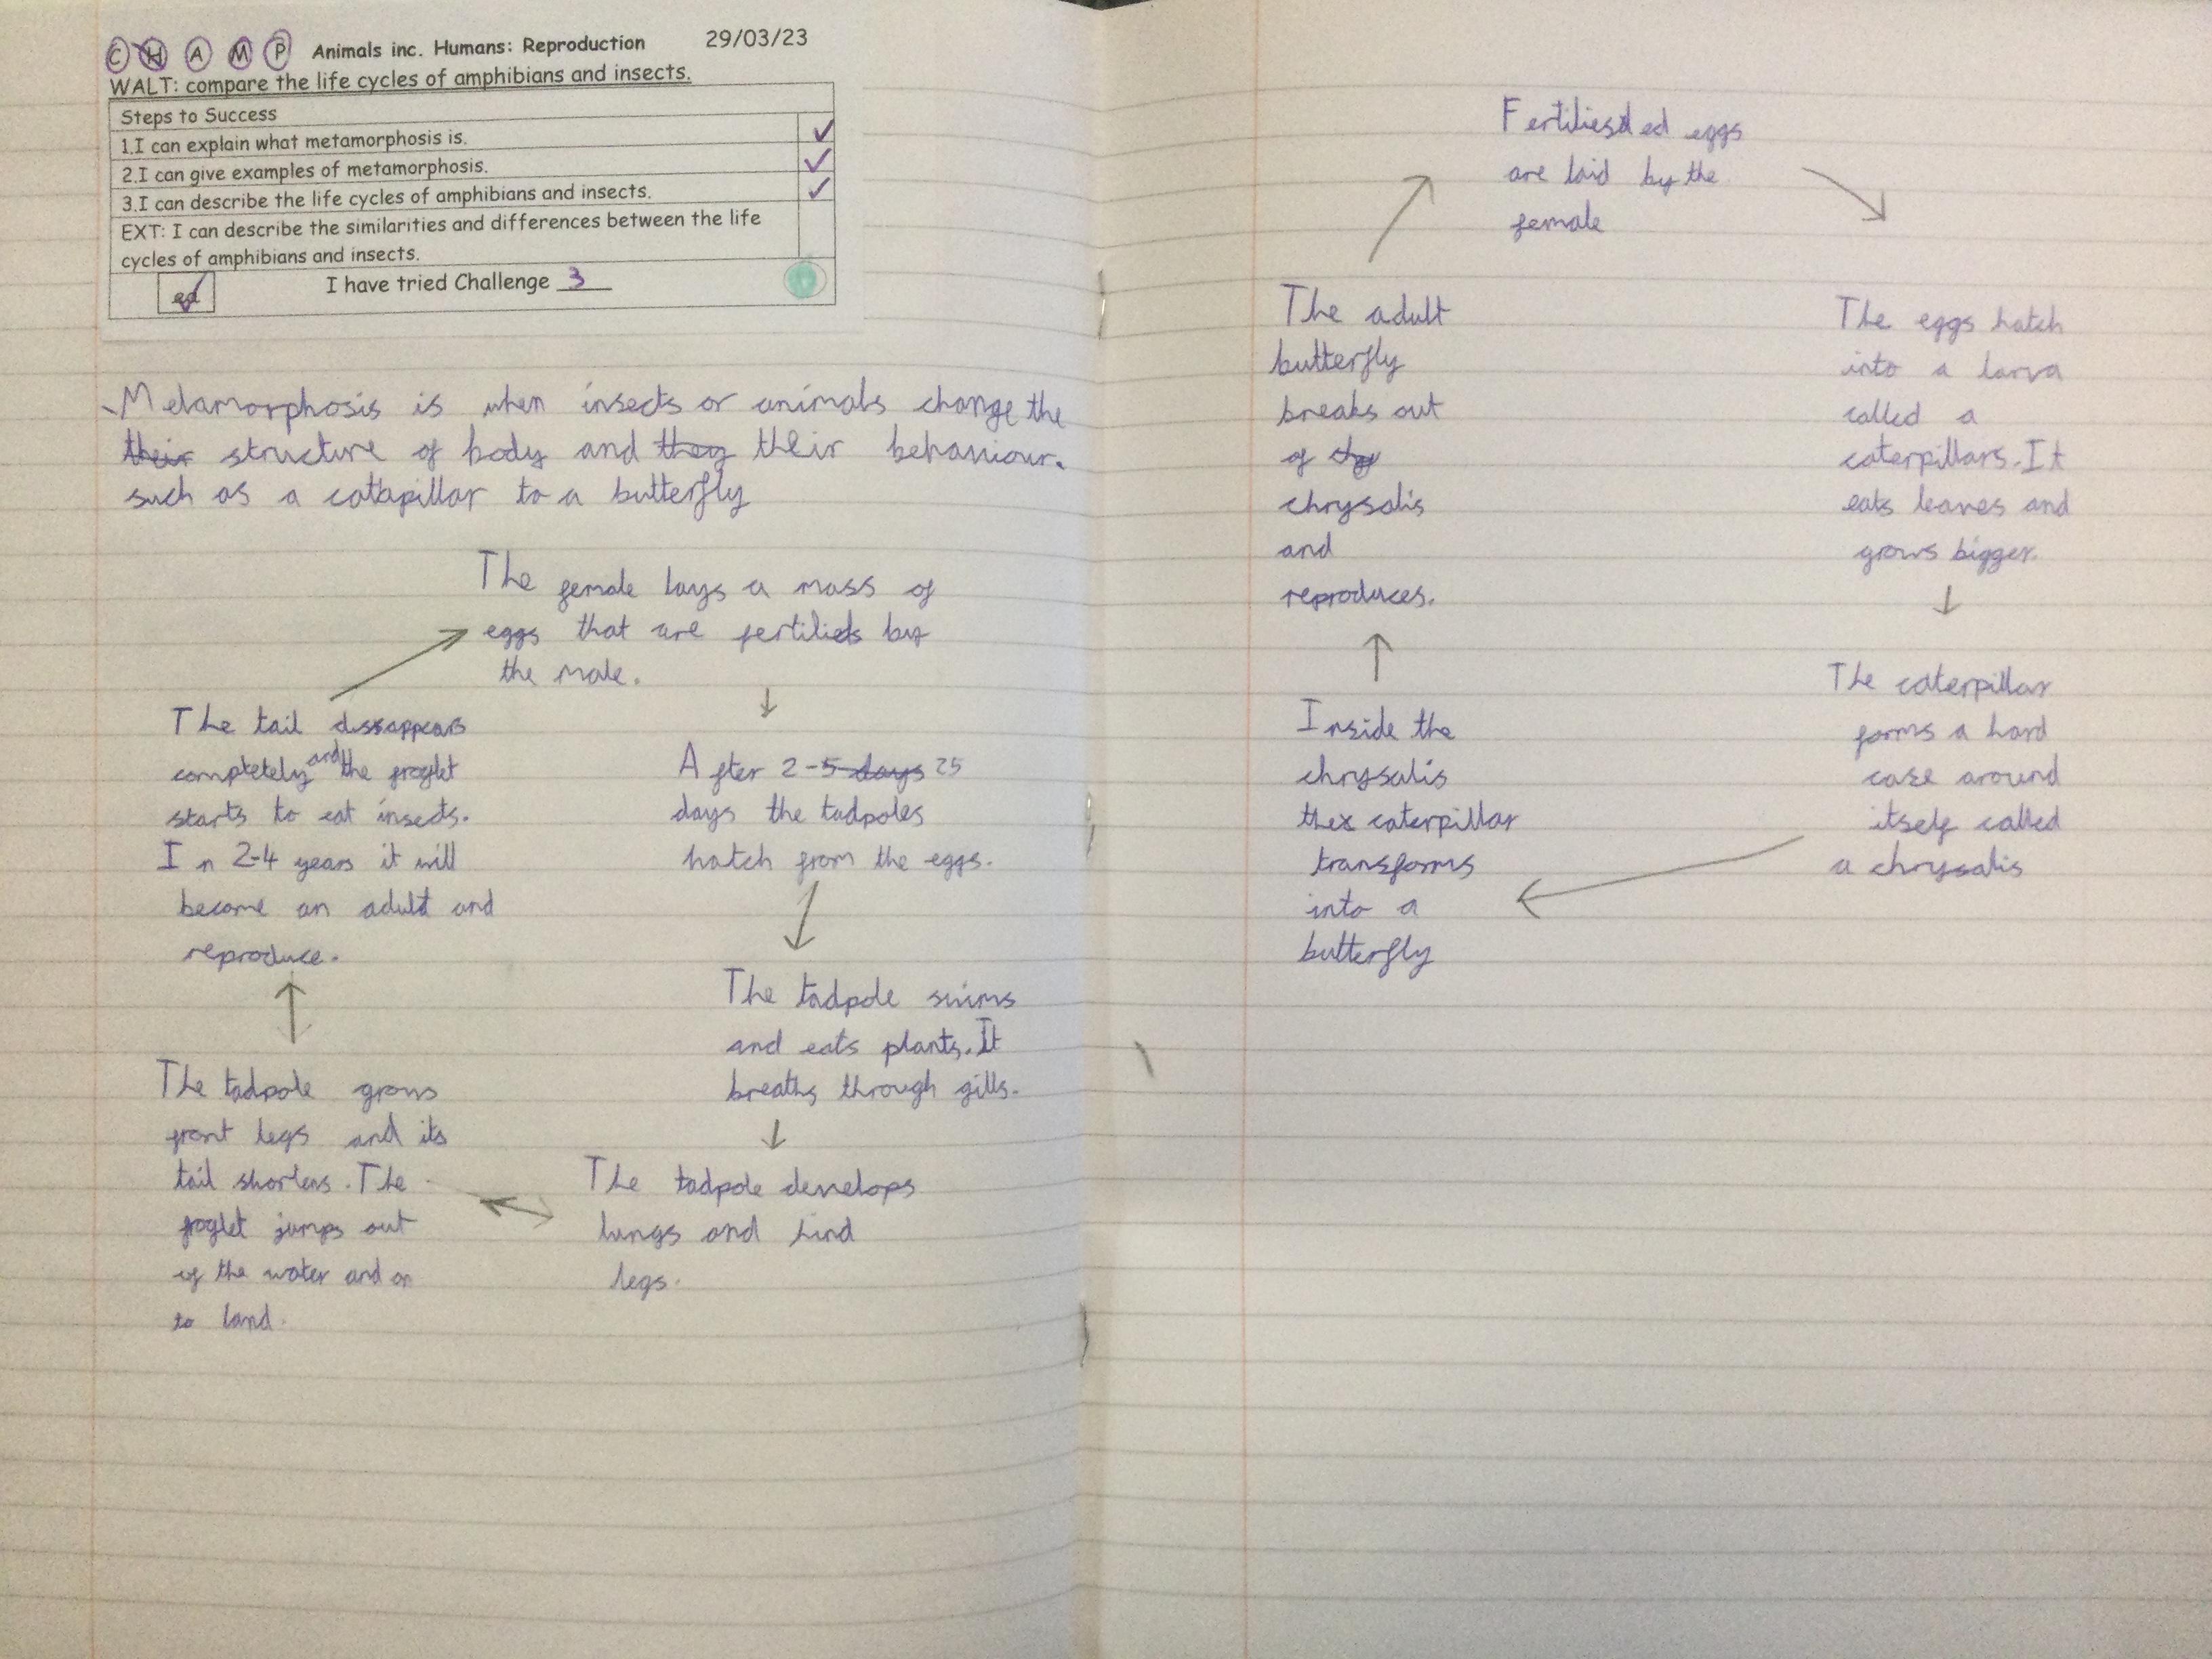 C H A M P Animals inc. Humans: Reproduction 29/03/23
WALT: compare the life cycles of amphibians and insects.
Steps to Success
1.I can explain what metamorphosis is.
2.I can give examples of metamorphosis.
3.I can describe the life cycles of amphibians and insects.
EXT: I can describe the similarities and differences between the life
cycles of amphibians and insects.
I have tried Challenge 3
Metamorphosis is when insects or animals change the
their structure of body and they their behaviour.
such as a catapillar to a butterfly
The female lays a mass of
eggs that are fertilieds by
the male.
After 2-5 days 25
days the tadpoles
hatch from the eggs.
The tadpole swims
and eats plants. It
breaths through gills.
The tadpole develops
lungs and hind
legs.
The tadpole grows
front legs and its
tail shortens. The
froglet jumps out
of the water and on
to land.
The tail dissappears
completely and the froglet
starts to eat insects.
In 2-4 years it will
become an adult and
reproduce.
Fertiliesed eggs
are laid by the
female
The eggs hatch
into a larva
called a
caterpillars. It
eats leaves and
grows bigger.
The caterpillar
forms a hard
case around
itself called
a chrysalis
Inside the
chrysalis
the caterpillar
transforms
into a
butterfly
The adult
butterfly
breaks out
of
chrysalis
and
reproduces.